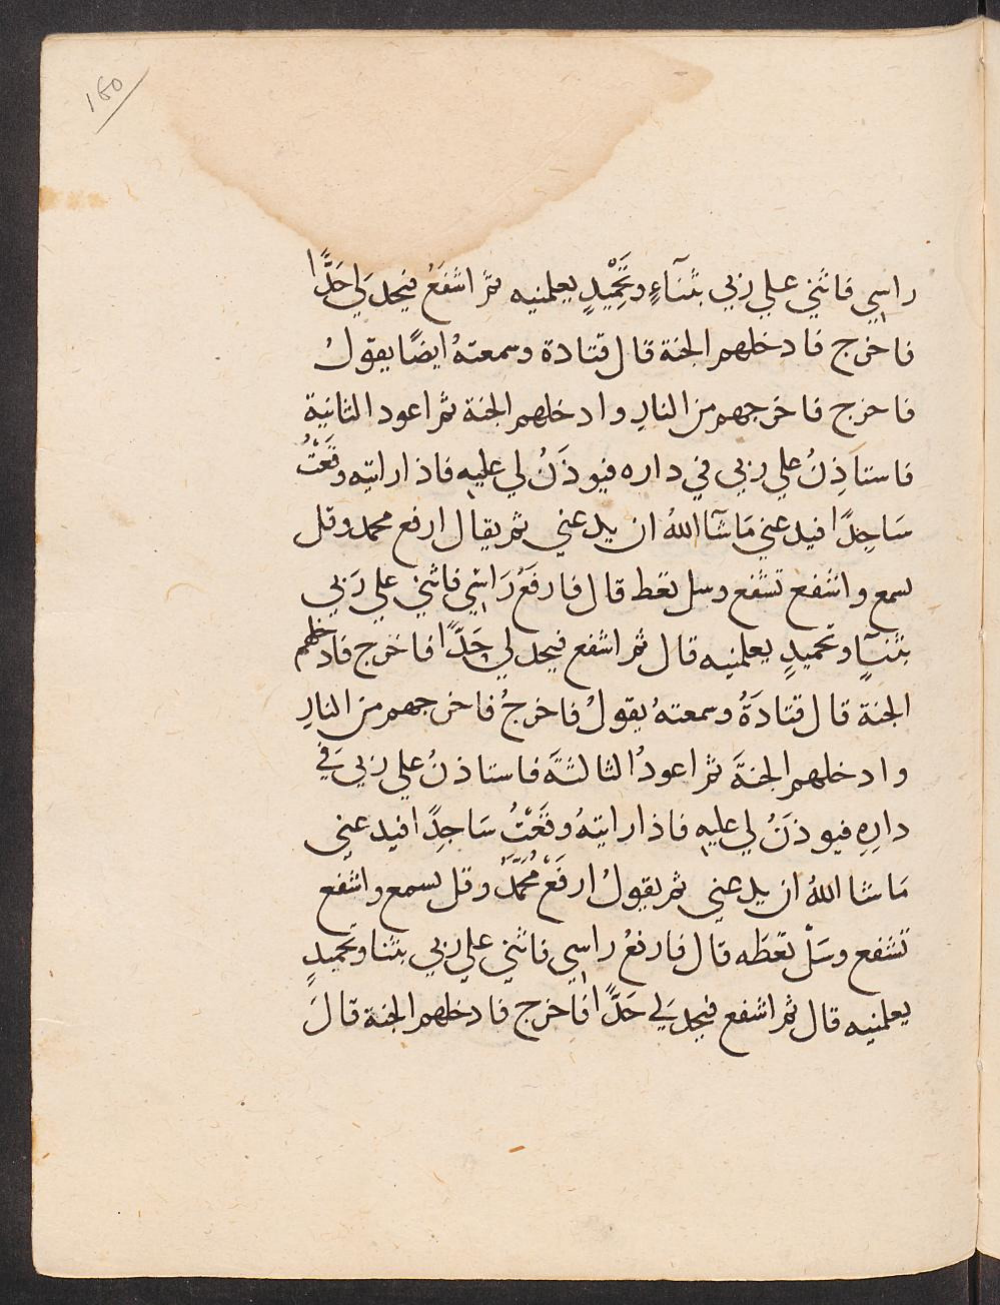 160
راسي فاثني علي ربي بثنآءٍ وتَحْمِيدٍ يعلمنيه ثم اشفَعُ فيحد لي حَدًّا
فاخرج فادخلهم الجنة قال قتادة وسمعتهُ ايضًا يقولُ
فاخرج فاخرجهم من النارِ وادخلهم الجنة ثم اعود الثانية
فاستاَذِنُ علي ربي في داره فيوذَنُ لي عليه فاذا رايته وقَعْتُ
سَاجِدًا فيدعني مَا شآا اللهُ ان يدعني ثم يقال ارفع محمد وقل
تسمع واشفع تشفع وسل تعط قال فارفَعُ رَاسِي فاثني علي رَبي
بثنآٍ وتحميدٍ يعلمنيه قال ثم اشفع فيحد لي حَدًّا فاخرج فادخلهم
الجنة قال قتادَةُ وسمعتهُ يقولُ فاخرجُ فاخرجهم من النارِ
وادخلهم الجنةَ ثم اعودُ الثالثةَ فاستاذنُ علي ربي في
دارِهِ فيوذَنُ لي عليه فاذا رايتهُ وقَعْتُ سَاجِدًا فيدعني
مَا شا اللهُ ان يدعني ثم يقولُ ارفَعْ مُحَمَّدُ وقل تسمع واشفع
تشفع وسَلْ تعطَه قال فارفعُ راسي فاثني علي ربي بثنا وتحميدٍ
يعلمنيه قال ثم اشفع فيحد لي حَدًّا فاخرج فادخلهم الجنة قالَ